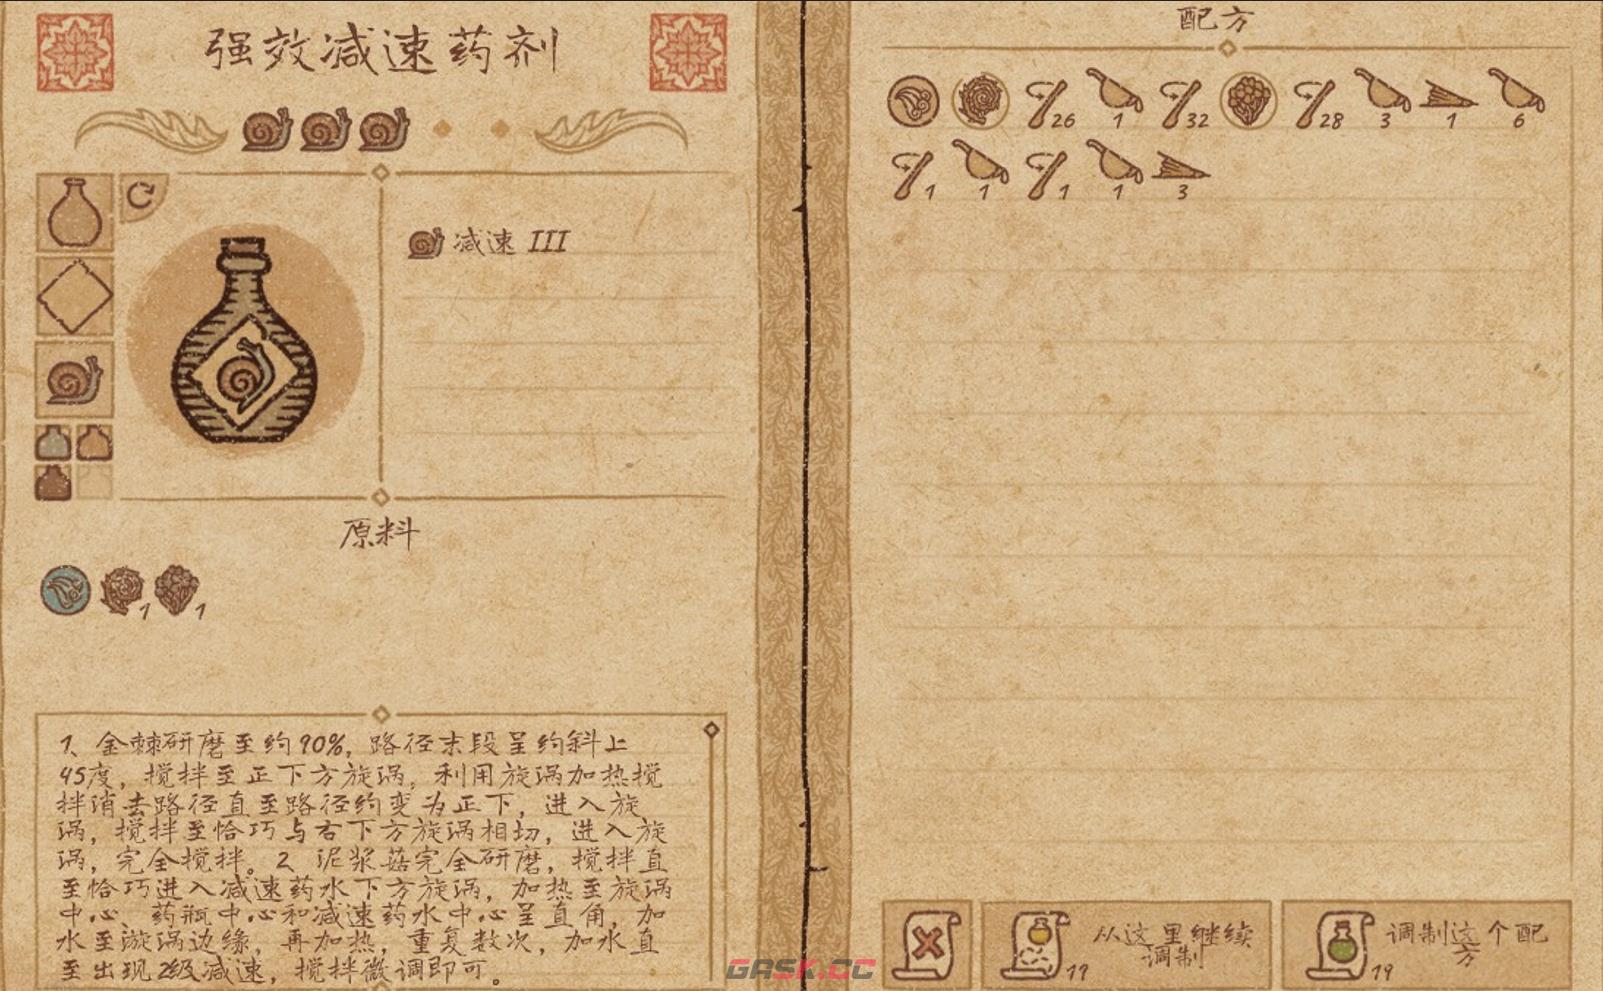 强效减速药剂
减速 III
原料
1 1
1、金棘研磨至约90%，路径末段呈约斜上
45度，搅拌至正下方旋涡，利用旋涡加热搅
拌消去路径直至路径约变为正下，进入旋
涡，搅拌至恰巧与右下方旋涡相切，进入旋
涡，完全搅拌。2、泥浆菇完全研磨，搅拌直
至恰巧进入减速药水下方旋涡，加热至旋涡
中心、药瓶中心和减速药水中心呈直角，加
水至漩涡边缘，再加热，重复数次，加水直
至出现2级减速，搅拌微调即可。
配方
26 1 32 28 3 1 6
1 1 1 1 3
17
从这里继续
调制
19
调制这个配
方
GASK.CC